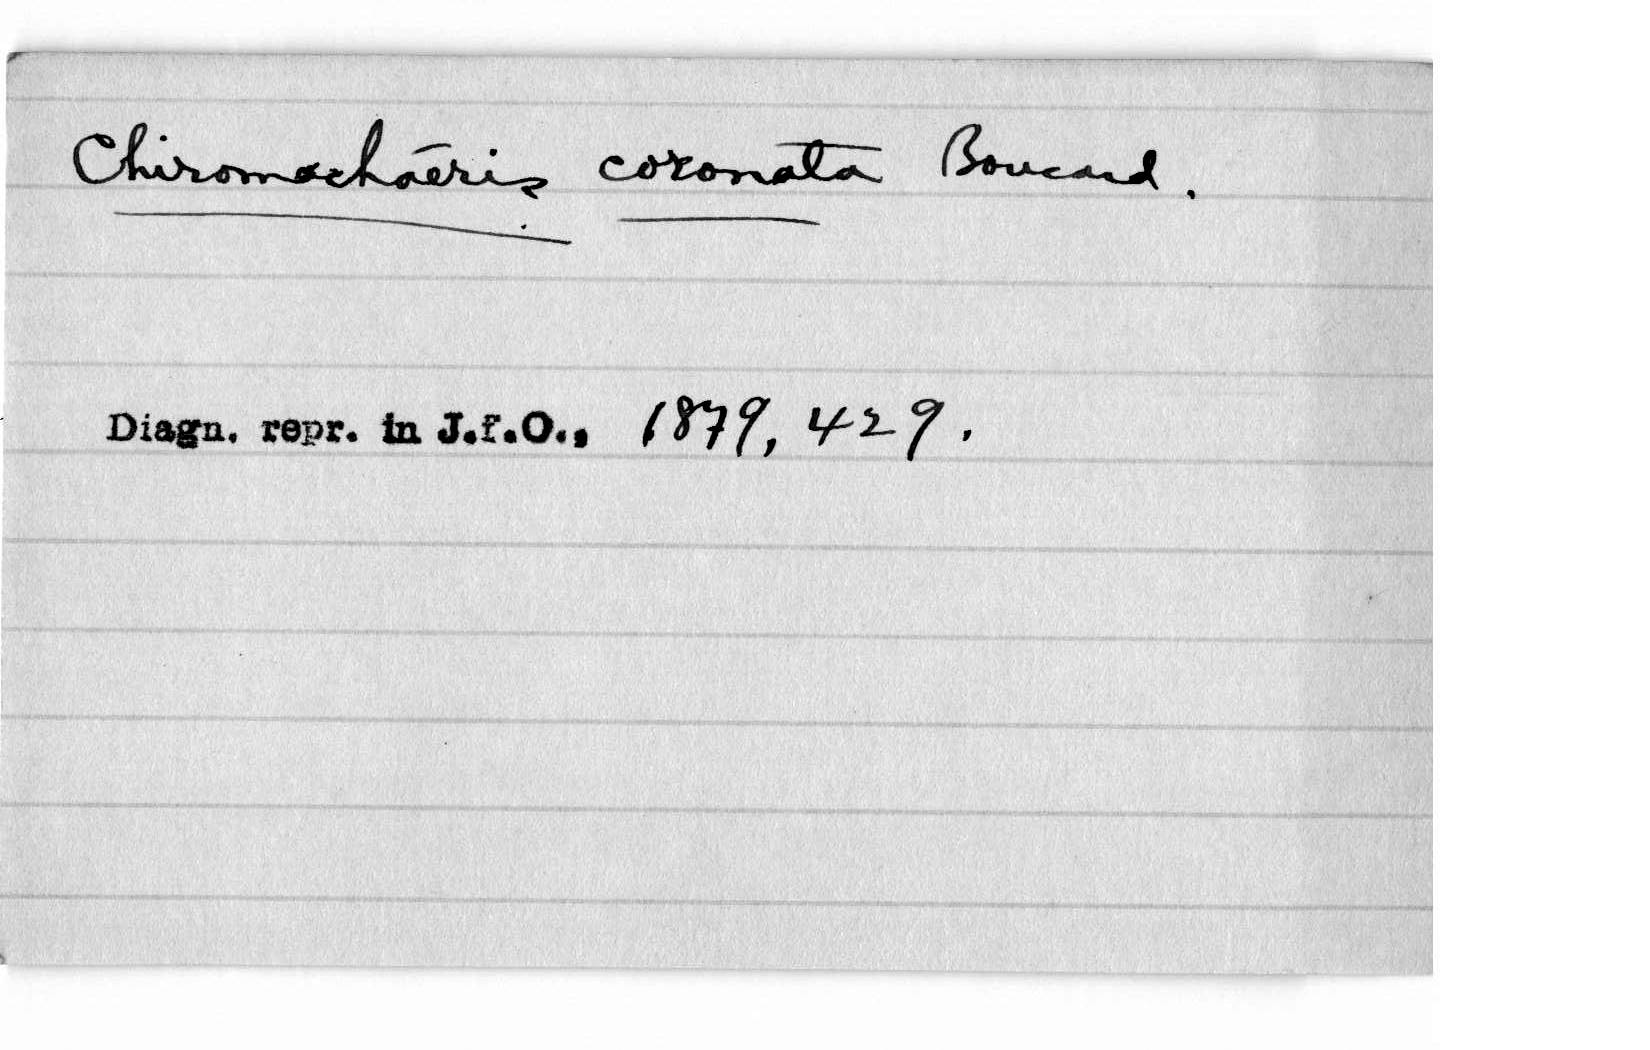 Chiromachaeris coronata Boucard.
Diagn. repr. in J.f.O., 1879, 429.